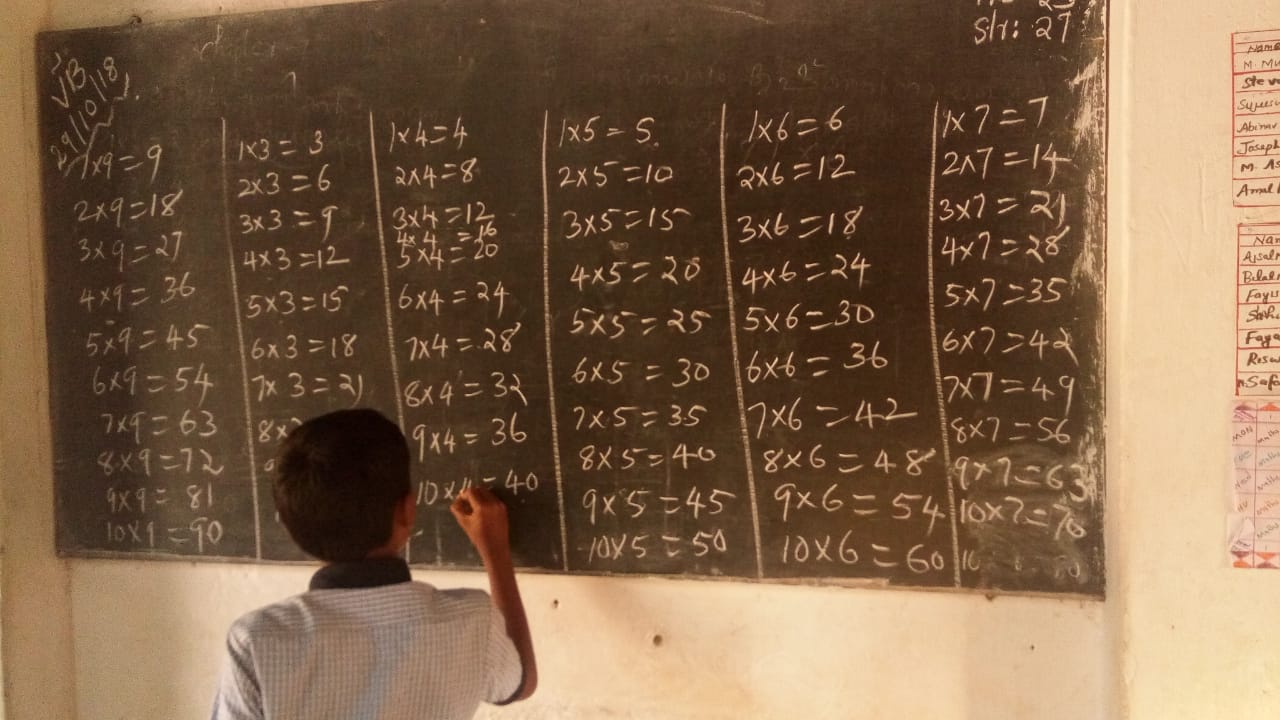 Str: 27
VB
29/10/18
1x9=9
2x9=18
3x9=27
4x9=36
5x9=45
6x9=54
7x9=63
8x9=72
9x9=81
10x9=90
1x3=3
2x3=6
3x3=9
4x3=12
5x3=15
6x3=18
7x3=21
1x4=4
2x4=8
3x4=12
4x4=16
5x4=20
6x4=24
7x4=28
8x4=32
9x4=36
10x4=40
1x5=5
2x5=10
3x5=15
4x5=20
5x5=25
6x5=30
7x5=35
8x5=40
9x5=45
10x5=50
1x6=6
2x6=12
3x6=18
4x6=24
5x6=30
6x6=36
7x6=42
8x6=48
9x6=54
10x6=60
1x7=7
2x7=14
3x7=21
4x7=28
5x7=35
6x7=42
7x7=49
8x7=56
9x7=63
10x7=70
Name
Joseph
M. As